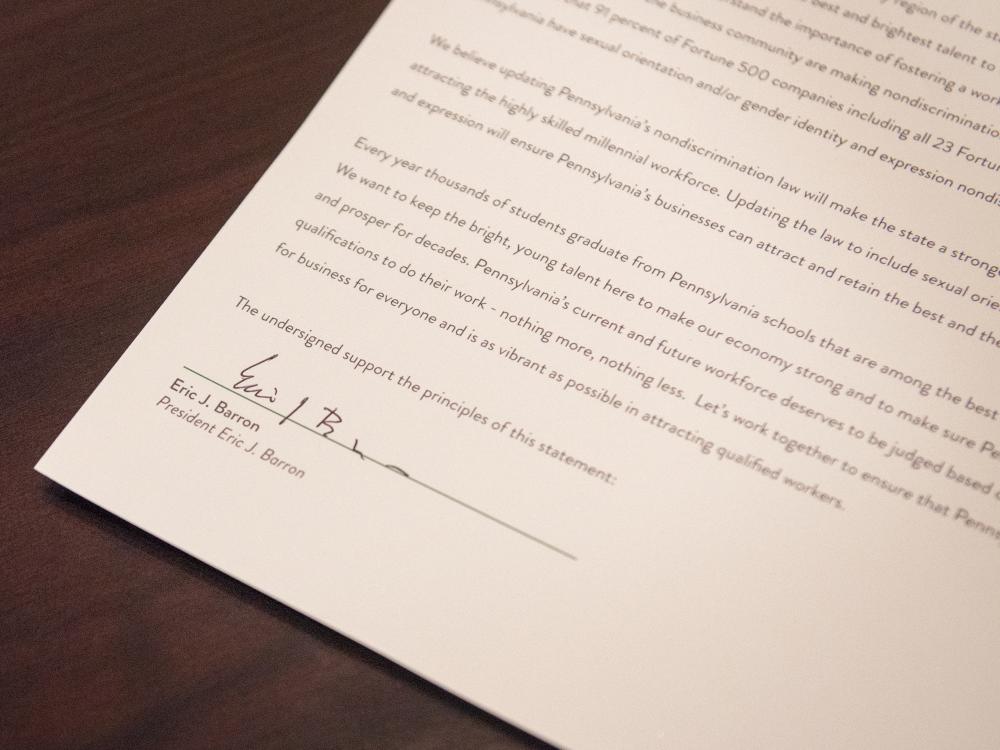 region of the
best and brightest talent to
stand the importance of fostering a
the business community are making
that 91 percent of Fortune 500 companies including all 23
have sexual orientation and/or gender identity and expression
We believe updating Pennsylvania's nondiscrimination law will make the state a
attracting the highly skilled millennial workforce. Updating the law to include sexual
and expression will ensure Pennsylvania's businesses can attract and retain the best and the
Every year thousands of students graduate from Pennsylvania schools that are among the best
We want to keep the bright, young talent here to make our economy strong and to make sure
and prosper for decades. Pennsylvania's current and future workforce deserves to be judged based
qualifications to do their work - nothing more, nothing less. Let's work together to ensure that
for business for everyone and is as vibrant as possible in attracting qualified workers.
The undersigned support the principles of this statement:
Eric J B
Eric J. Barron
President Eric J. Barron